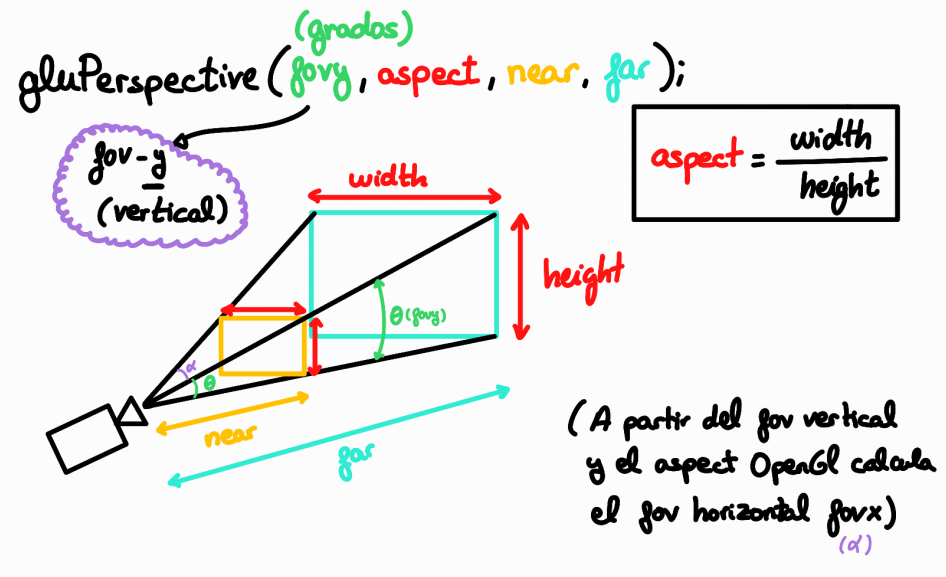 (grados)
gluPerspective(fovy, aspect, near, far);
fov-y
(vertical)
aspect = width
height
width
height
θ(fovy)
α
θ
near
far
(A partir del fov vertical
y el aspect OpenGl calcula
el fov horizontal fovx)
(α)